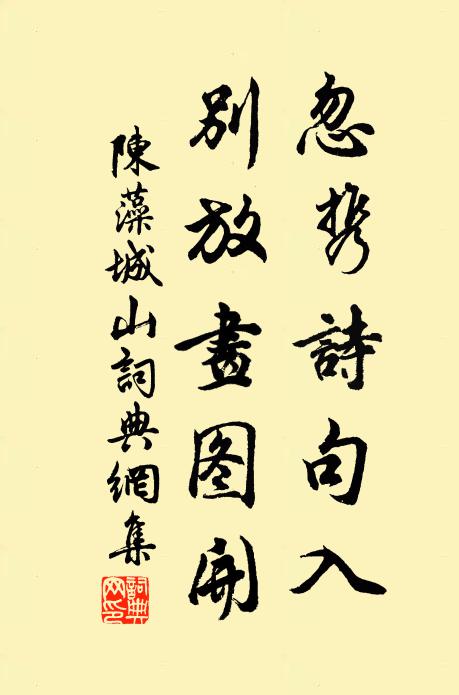 忽携詩句入
别放畫图開
陳藻城山詞典網集
詞典网印